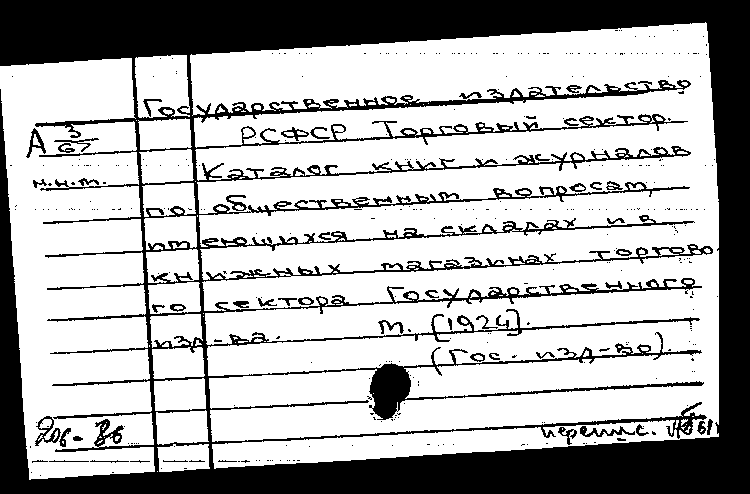 Государственное издательство
А 3/67 РСФСР Торговый сектор.
н.н.т. Каталог книг и журналов
по общественным вопросам,
имеющихся на складах и в
книжных магазинах торгово-
го сектора Государственного
изд-ва. М., [1924].
(Гос. изд-во).
206-
перепис.